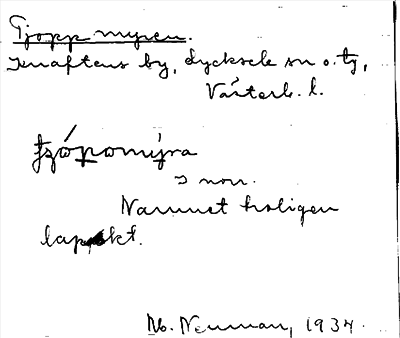 Tjoppmyren.
Knaftens by, Lycksele sn o. tg,
Västerb. l.
tzópomýra
ɔ nou.
Namnet troligen
lapskt.
Nb. Neuman, 1934.